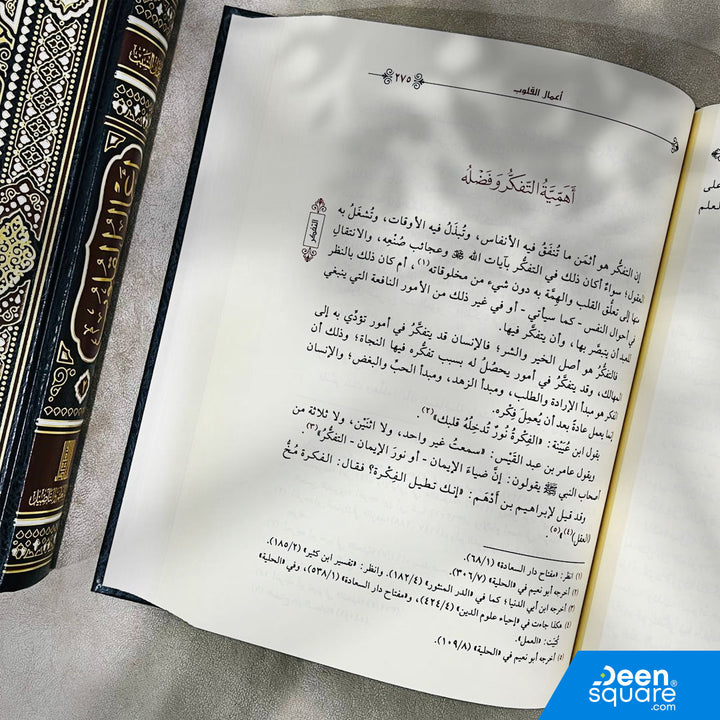 ٢٧٥
أعمال القلوب
أَهَمِّيَّةُ التَّفَكُّرِ وَفَضْلُهُ
التفكر
إن التفكُّر هو أثمَن ما تُنفَقُ فيه الأنفاس، وتُبذَلُ فيه الأوقات، وتُشغَلُ به
العقول؛ سواءٌ أكان ذلك في التفكُّر بآيات الله ﷻ وعجائب صُنْعِه، والانتقالِ
منها إلى تعلُّق القلب والهِمَّة به دون شيء من مخلوقاته(١)، أم كان ذلك بالنظر
في أحوال النفس - كما سيأتي - أو في غير ذلك من الأمور النافعة التي ينبغي
للعبد أن يتبصَّر بها، وأن يتفكَّر فيها.
فالتفكُّر هو أصل الخير والشر؛ فالإنسان قد يتفكَّرُ في أمور تؤدِّي به إلى
المهالك، وقد يتفكَّرُ في أمور يحصلُ له بسبب تفكُّره فيها النجاة؛ وذلك أن
الفكر هو مبدأ الإرادة والطلب، ومبدأ الزهد، ومبدأ الحبِّ والبغض؛ والإنسان
إنما يعمل عادةً بعد أن يُعمِلَ فِكْره.
يقول ابن عُيَيْنَة: «الفِكْرةُ نُورٌ تُدخِلُهُ قلبك»(٢).
ويقول عامر بن عبد القَيْس: «سمعتُ غير واحد، ولا اثنَين، ولا ثلاثة من
أصحاب النبي ﷺ يقولون: إنَّ ضياءَ الإيمان - أو نورَ الإيمان - التفكُّرُ»(٣).
وقد قيل لإبراهيم بن أَدْهَم: «إنك تطيل الفِكْرة؟ فقال: الفكرة مُخُّ
العقل(٤)»(٥).
(١) انظر: «مفتاح دار السعادة» (٦٨/١).
(٢) أخرجه أبو نعيم في «الحلية» (٣٠٦/٧).
(٣) أخرجه ابن أبي الدنيا؛ كما في «الدر المنثور» (١٨٢/٤). وانظر: «تفسير ابن كثير» (١٨٥/٢).
(٤) هكذا جاءت في «إحياء علوم الدين» (٤٢٤/٤)، و«مفتاح دار السعادة» (٥٣٨/١)، وفي «الحلية»
كُتِبَت: «العمل».
(٥) أخرجه أبو نعيم في «الحلية» (١٠٩/٨).
على
العلم
Deen
square®
.com